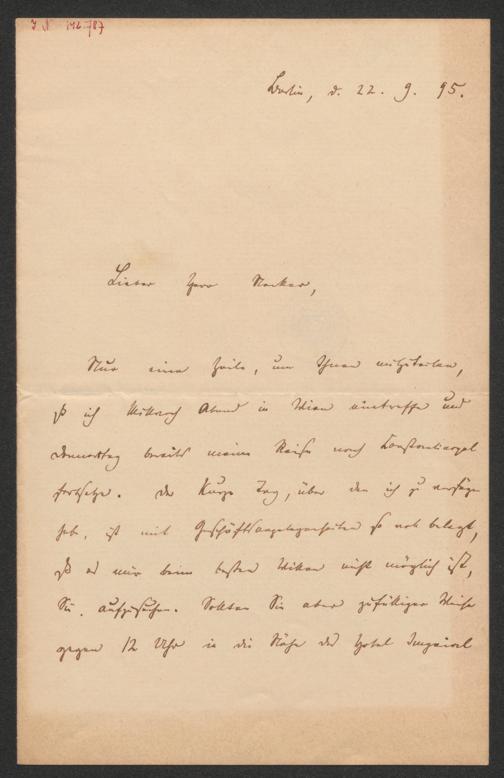 I.N. 142.787
Berlin, d. 22. 9. 95.
Lieber Herr Necker,
Nur eine Zeile, um Ihnen mitzuteilen,
daß ich Mittwoch Abend in Wien eintreffe und
Donnerstag bereits meine Reise nach Konstantinopel
fortsetze. Der kurze Tag, über den ich zu verfügen
habe, ist mit Geschäftsangelegenheiten so voll belegt,
daß es mir beim besten Willen nicht möglich ist,
Sie aufzusuchen. Sollten Sie aber zufälliger Weise
gegen 12 Uhr in die Nähe des Hotel Imperial